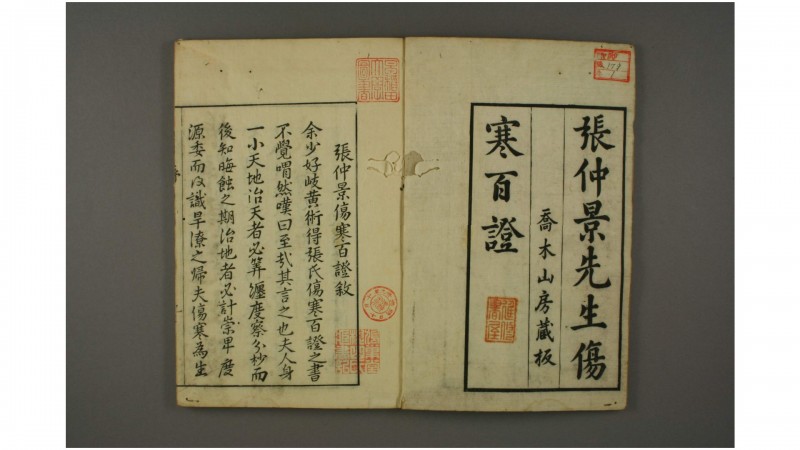 張仲景先生傷
寒百證
喬木山房藏板
張仲景傷寒百證敘
余少好岐黃術得張氏傷寒百證之書
不覺喟然嘆曰至哉其言之也夫人身
一小天地治天者必筭躔度察分秒而
後知晦蝕之期治地者必計崇卑度
源委而後識旱潦之歸夫傷寒為生